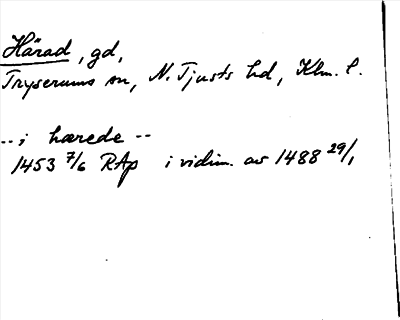 Härad, gd,
Tryserums sn, N. Tjusts hd, Klm. l.
-- i hærede --
1453 7/6 RAp i vidim. av 1488 29/1